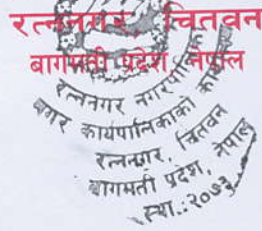 रत्ननगर, चितवन
बागमती प्रदेश, नेपाल
रत्ननगर नगरपालिका
नगर कार्यपालिकाको कार्यालय
रत्ननगर, चितवन
बागमती प्रदेश, नेपाल
स्था.: २०७३